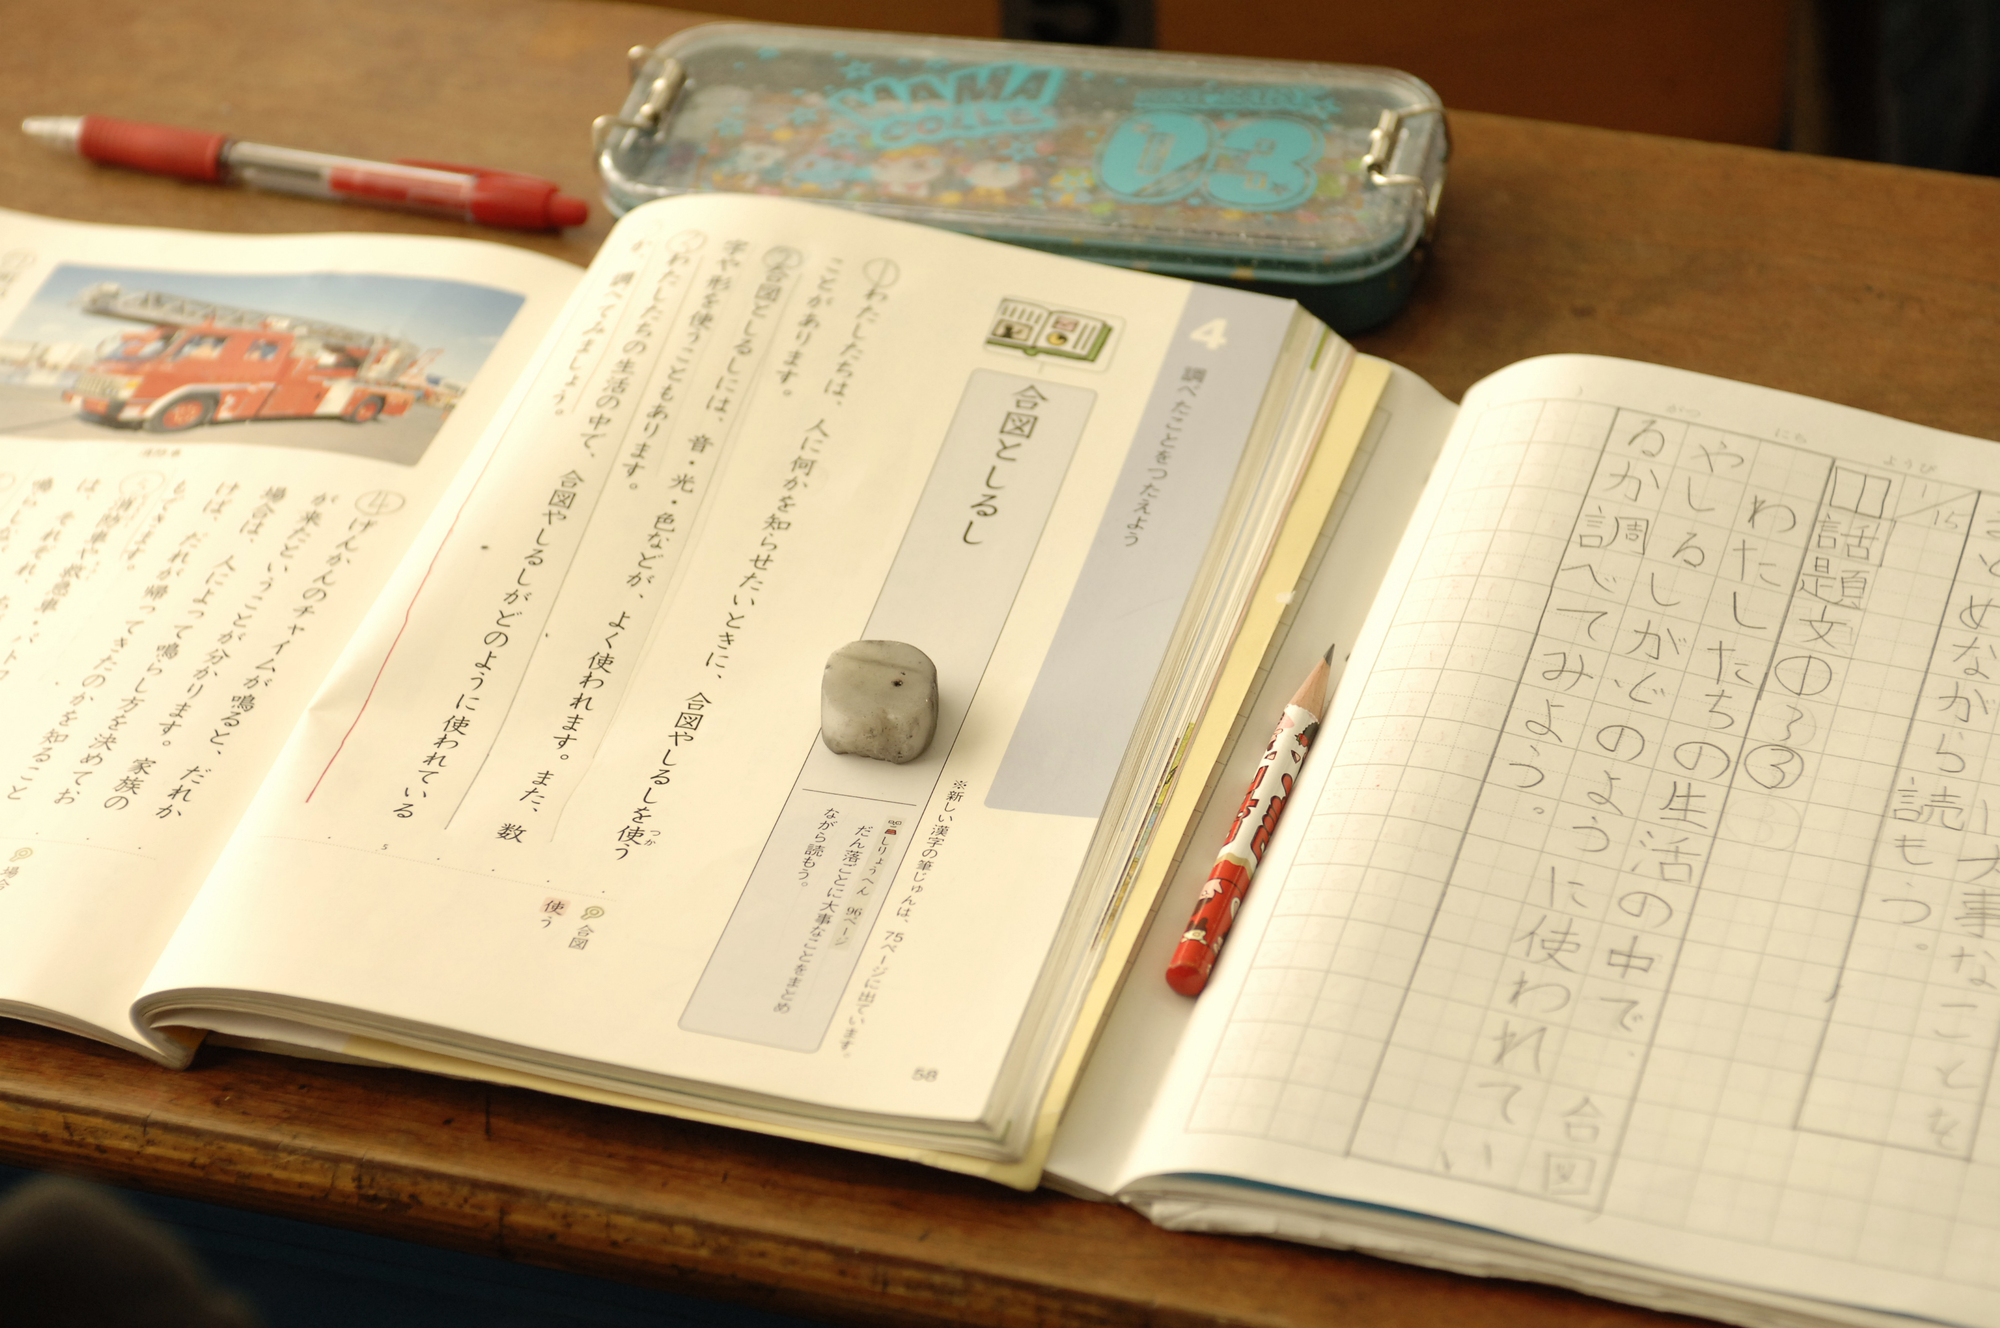 MAMA
03
4 調べたことをつたえよう
合図としるし
※新しい漢字の筆じゅんは、75ページに出ています。
しりょうへん 96ページ
だん落ごとに大事なことをまとめ
ながら読もう。
①わたしたちは、人に何かを知らせたいときに、合図やしるしを使う
つか
ことがあります。
②合図としるしには、音・光・色などが、よく使われます。また、数
字や形を使うこともあります。
③わたしたちの生活の中で、合図やしるしがどのように使われている
か、調べてみましょう。
合図
使う
5
58
④げんかんのチャイムが鳴ると、だれか
が来たということが分かります。家族の
場合は、人によって鳴らし方を決めてお
けば、だれが帰ってきたのかを知ること
もできます。
⑤消防車や救急車・パトカ
は、それぞれ
場合
消防車
がつ
にち
ようび
大事なことを
まとめながら読もう。
1/15
話題文①②③
わたしたちの生活の中で、合図
やしるしがどのように使われてい
るか調べてみよう。